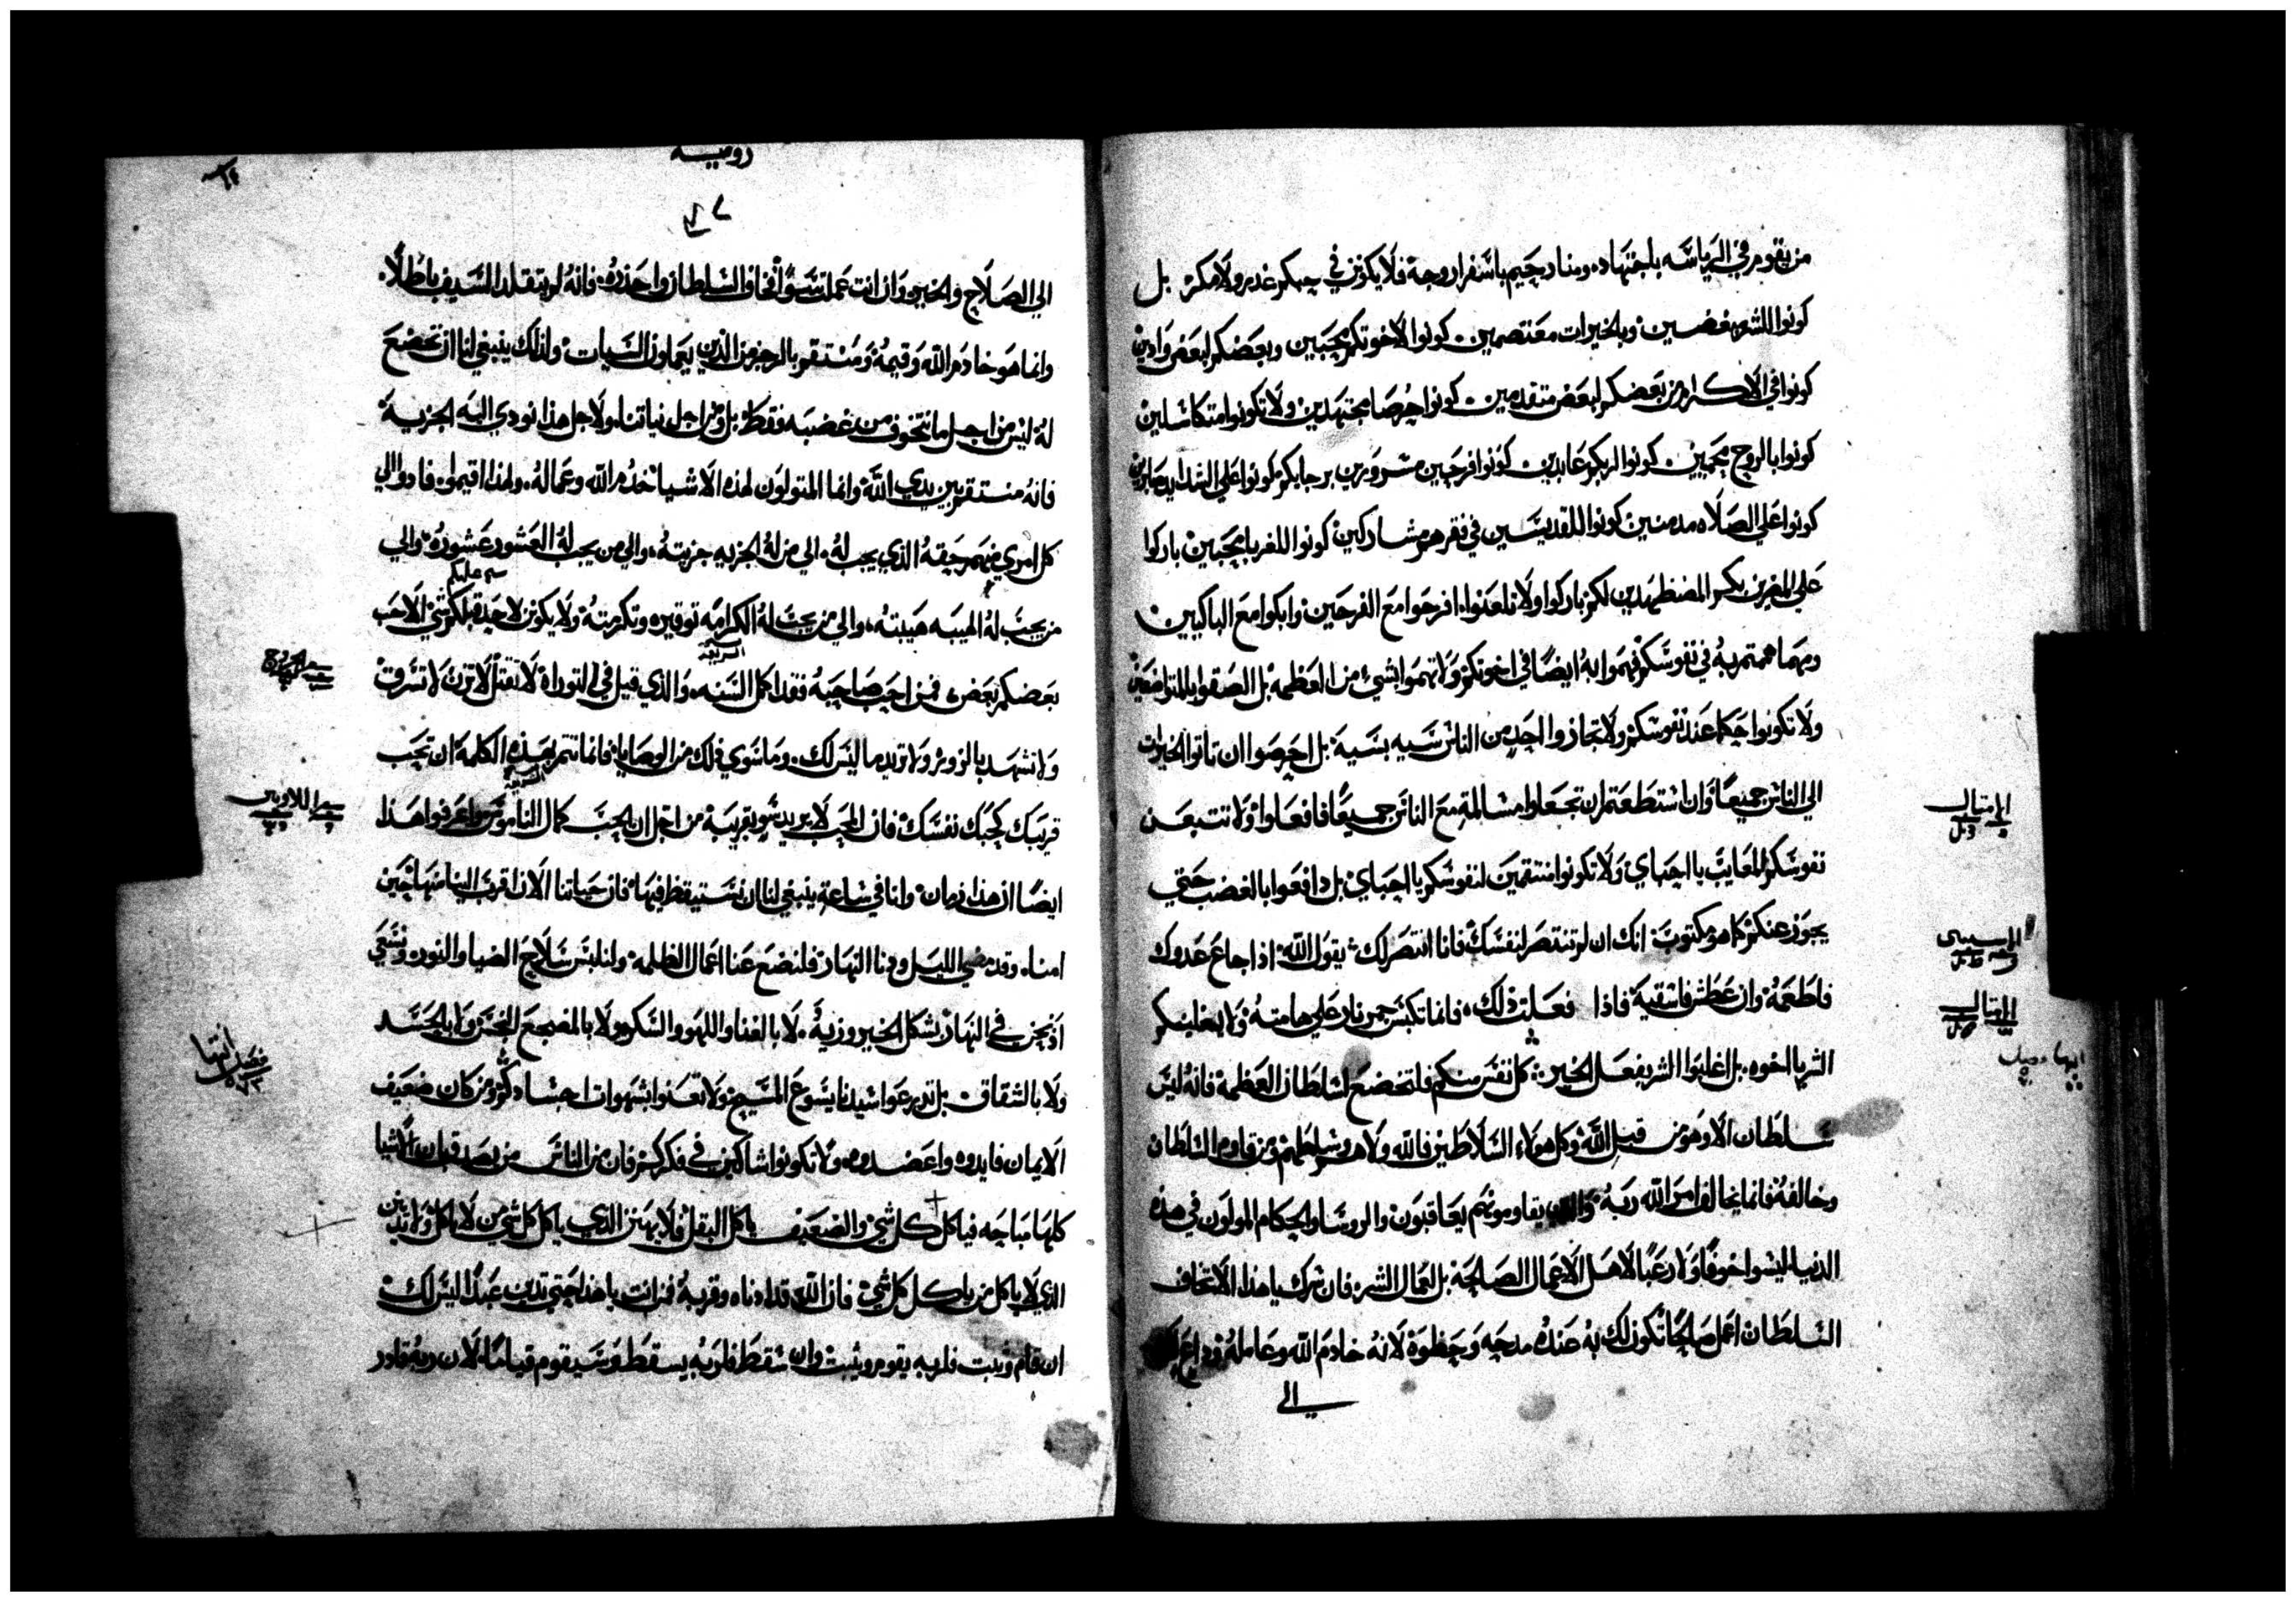 من يقوم في الرياسه باجتهاد، ومنا رحيم باسفار وجهة فلا يكونن في حبكم غدر ولا مكر بل
كونوا للشر مبغضين وبالخيرات معتصمين كونوا لاخوتكم محبين وبعضكم لبعض وادين
كونوا في الاكرام من بعضكم لبعض متقدمين كونوا حرصا مجتهدين ولا تكونوا متكاسلين
كونوا بالروح محميين كونوا لربكم عابدين كونوا فرحين مسرورين برجايكم كونوا علي الشدايد صابرين
كونوا علي الصلاه مدمنين كونوا للقديسين في فقرهم مشاركين كونوا للغربا محبين باركوا
علي المضطهدين لكم باركوا ولا تلعنوا، افرحوا مع الفرحين وابكوا مع الباكيين
ومهما هممتم به في نفوسكم فهموا به ايضا في اخوتكم ولا تهموا بشيء من العظمه بل الصقوا بالمتواضعين
ولا تكونوا حكما عند نفوسكم ولا تجازوا احد من الناس سيه بسية بل احرصوا ان تاتوا الخيرات
الي الناس جميعا وان استطعتم ان تجعلوا مسالمة مع الناس جميعا فافعلوا ولا تتبعن
نفوسكم المعايب يا احباي ولا تكونوا منتقمين لنفوسكم يا احباي بل دافعوا بالغضب حتي
يجوز عنكم كما هو مكتوب انك ان لم تنتصر لنفسك فانا انتصر لك يقول الله اذا جاع عدوك
فاطعمه وان عطش فاسقيه فاذا فعلت ذلك، فانما تكبس جمر نار علي هامته ولا يغلبنكم
الشر يا اخوه بل اغلبوا الشر بفعل الخير كل نفس منكم فلتخضع لسلطان العظمة فانه ليس
سلطان الا وهو من قبل الله وكل هولاء السلاطين فالله ولاهم وسلطهم ومن قاوم السلطان
وخالفه فانما يخالف امر الله ربه والذين يقاومونهم يعاقبون والروسا والحكام المولون في هذه
الدنيا ليسوا خوفا ولا رعبا لاهل الاعمال الصالحة بل لعمال الشر فان سرك يا هذا الا تخاف
السلطان اعمل صالحا تكون لك به عنده مدحه وحظوة لانه خادم الله وعامله
الي
المتال
المتال
رومييه
الي الصلاح والخير وان انت عملت سوا فخاف السلطان واحذره فانه لم يتقلد السيف باطلا
وانما هو خادم الله وقيمه ومنتقم بالرجز من الذين يعملون السيات ولذلك ينبغي لنا ان نخضع
له ليس من اجل ما نتخوف من غضبه فقط بل ومن اجل نياتنا ولاجل هذا نودي اليه الجزية
فانه منتقم بين يدي الله وانما المتولون لهذه الاشيا خدم الله وعماله، ولهذا اقيموا فادوا الي
كل امري منهم حقه الذي يجب له، الي من له الجزيه جزيته، والي من يجب له العشور عشوره والي
من يجب له الهيبه هيبته، والي من يجب له الكرامه توقيره وتكرمته ولا يكونن لاحد قبلكم شي الا حب
بعضكم بعض، فمن احب صاحبه فقد اكمل السنه، والذي قيل في التوراة لا تقتل لا تزن لا تسرق
ولا تشهد بالزور ولا تريد ما ليس لك وما سوي ذلك من الوصايا فانما تتم بهذه الكلمة ان تحب
قريبك كحبك نفسك فان المحب لا يريد سو بقريبه من اجل ان الحب كمال الناموس واعرفوا هذا
ايضا ان هذا زمان وانا في ساعة ينبغي لنا ان نستيقظ فيها فان حياتنا الان اقرب الينا منها حين
امنا، وقد مضي الليل ودنا النهار فلنضع عنا اعمال الظلمه ولنلبس سلاح الضيا والنور ونسعي
اذ نحن في النهار بشكل الخير وزيه، لا بالغنا واللهو والسكر ولا بالمضجع النجس ولا بالحسد
ولا بالشقاق بل تدرعوا سيدنا يسوع المسيح ولا تعنوا بشهوات اجسادكم ومن كان ضعيف
الايمان فايدوه واعضدوه ولا تكونوا شاكين في فكركم فان من الناس من يصدق بان الاشيا
كلها مباحه فياكل كل شي والضعيف ياكل البقل فلا يهزن الذي ياكل كل شي من لا ياكل ولا يدينن
الذي لا ياكل من ياكل كل شي فان الله قد ادناه وقربه فمن انت يا هذا حتي تدين عبدا ليس لك
ان قام وثبت فلربه يقوم ويثبت وان سقط فلربه يسقط وسيقوم قياما، لان ربه قادر